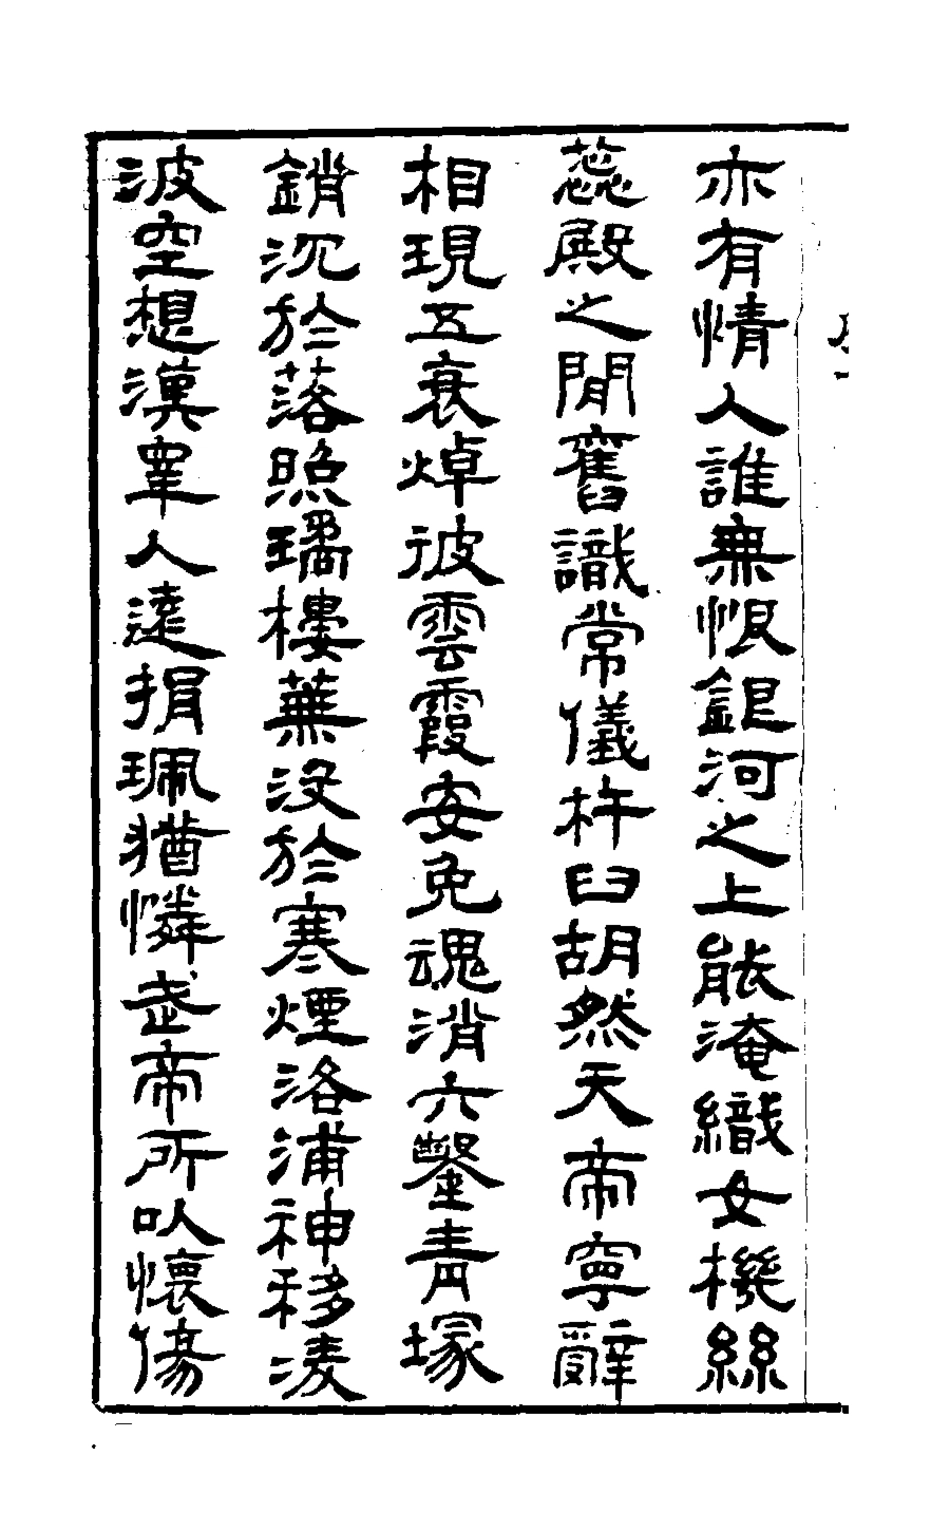 亦有情人誰無恨銀河之上能淹織女機絲
蕊殿之間舊識常儀杵臼胡然天帝寧辭
相現五衰焯彼雲霞安免魂消六鑿青塚
銷沉於落照璚樓蕪没於寒煙洛浦神移凌
波空想漢臯人遠捐珮猶憐武帝所以懷傷